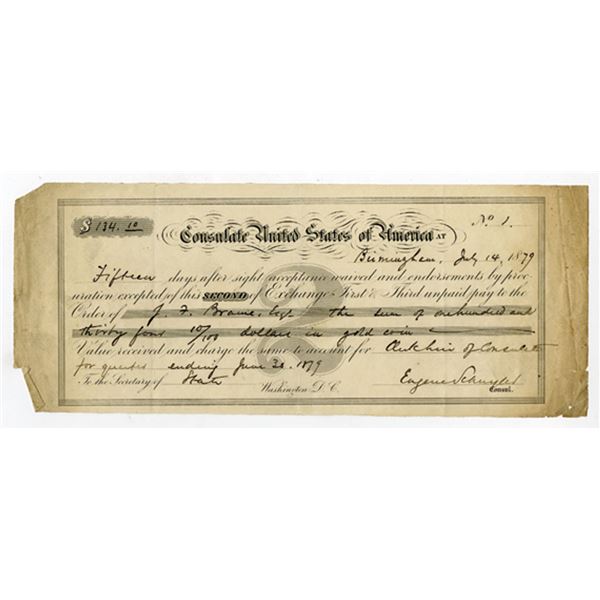 $ 134.10
No 1.
Consulate United States of America AT
Birmingham, July 14, 1879
Fifteen days after sight acceptance waived and endorsements by proc-
uration excepted of this SECOND of Exchange First & Third unpaid pay to the
Order of J. F. Esqr the sum of one hundred and
thirty four 10/100 dollars in gold coin
Value received and charge the same to account for of Consulate
for quarter ending June 30. 1879
To the Secretary of State
Washington D.C.
Eugene Schuyler
Consul.